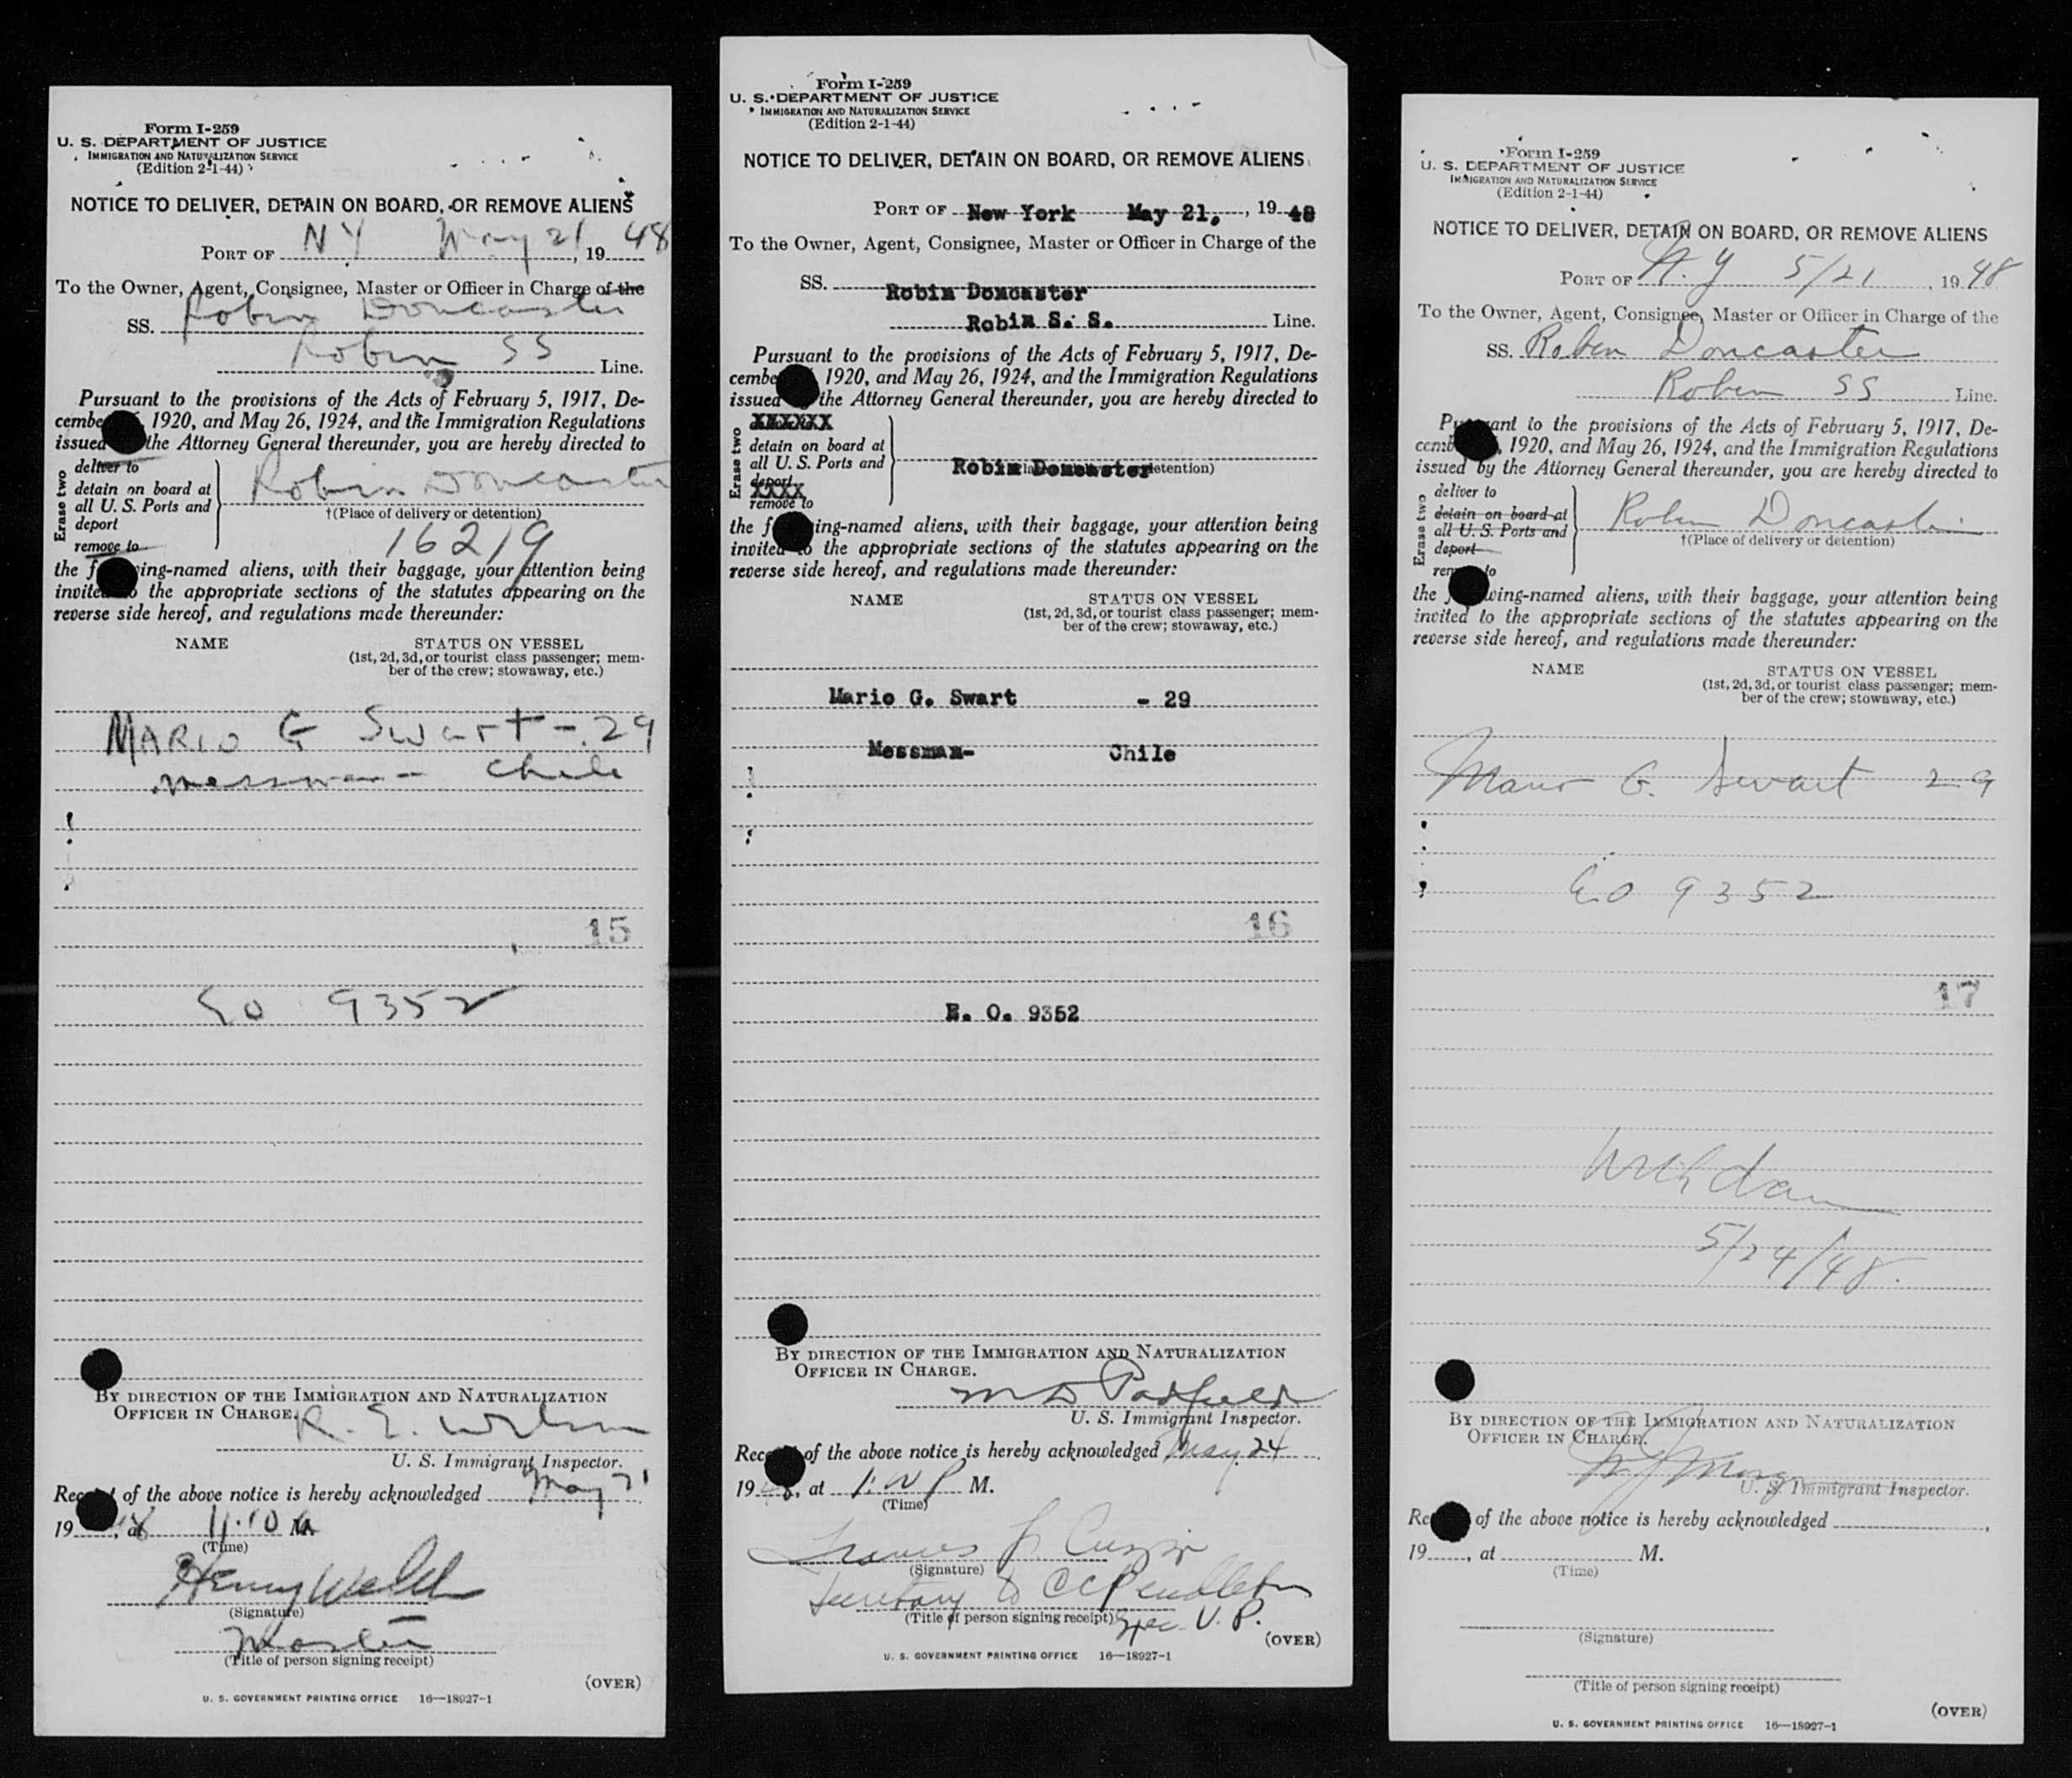 Form I-259
U. S. DEPARTMENT OF JUSTICE
IMMIGRATION AND NATURALIZATION SERVICE
(Edition 2-1-44)
NOTICE TO DELIVER, DETAIN ON BOARD, OR REMOVE ALIENS
PORT OF N Y May 21, 19 48
To the Owner, Agent, Consignee, Master or Officer in Charge of the
SS. Robin Doncaster
Robin SS Line.
Pursuant to the provisions of the Acts of February 5, 1917, De-
cembe 1920, and May 26, 1924, and the Immigration Regulations
issued the Attorney General thereunder, you are hereby directed to
Erase two
deliver to
detain on board at
all U. S. Ports and
deport
remove to
Robin Doncaster
†(Place of delivery or detention)
16219
the f ing-named aliens, with their baggage, your attention being
invited to the appropriate sections of the statutes appearing on the
reverse side hereof, and regulations made thereunder:
NAME STATUS ON VESSEL
(1st, 2d, 3d, or tourist class passenger; mem-
ber of the crew; stowaway, etc.)
MARIO G Swart - 29
messman - Chile
15
EO 9352
BY DIRECTION OF THE IMMIGRATION AND NATURALIZATION
OFFICER IN CHARGE.
R. E. Wilson
U. S. Immigrant Inspector.
Rec t of the above notice is hereby acknowledged May 21,
19 48, at 11:10 a M.
(Time)
Henry Welch
(Signature)
Master
(Title of person signing receipt)
(OVER)
U. S. GOVERNMENT PRINTING OFFICE 16—18927-1
Form I-259
U. S. DEPARTMENT OF JUSTICE
IMMIGRATION AND NATURALIZATION SERVICE
(Edition 2-1-44)
NOTICE TO DELIVER, DETAIN ON BOARD, OR REMOVE ALIENS
PORT OF New York May 21, , 19 48
To the Owner, Agent, Consignee, Master or Officer in Charge of the
SS. Robin Doncaster
Robin S. S. Line.
Pursuant to the provisions of the Acts of February 5, 1917, De-
cembe 1920, and May 26, 1924, and the Immigration Regulations
issued the Attorney General thereunder, you are hereby directed to
Erase two
XXXXXX
detain on board at
all U. S. Ports and
deport
XXXX
remove to
Robin Doncaster
the f ing-named aliens, with their baggage, your attention being
invited to the appropriate sections of the statutes appearing on the
reverse side hereof, and regulations made thereunder:
NAME STATUS ON VESSEL
(1st, 2d, 3d, or tourist class passenger; mem-
ber of the crew; stowaway, etc.)
Mario G. Swart - 29
Messman- Chile
16
E. O. 9352
BY DIRECTION OF THE IMMIGRATION AND NATURALIZATION
OFFICER IN CHARGE.
M D Padfield
U. S. Immigrant Inspector.
Rec of the above notice is hereby acknowledged May 24,
19 48, at P M.
(Time)
Frances J.
(Signature)
Secretary to C C Pendleton
(Title of person signing receipt) Exec. V. P.
(OVER)
U. S. GOVERNMENT PRINTING OFFICE 16—18927-1
Form I-259
U. S. DEPARTMENT OF JUSTICE
IMMIGRATION AND NATURALIZATION SERVICE
(Edition 2-1-44)
NOTICE TO DELIVER, DETAIN ON BOARD, OR REMOVE ALIENS
PORT OF N. Y 5/21, 19 48
To the Owner, Agent, Consignee, Master or Officer in Charge of the
SS. Robin Doncaster
Robin SS Line.
P ant to the provisions of the Acts of February 5, 1917, De-
cemb , 1920, and May 26, 1924, and the Immigration Regulations
issued by the Attorney General thereunder, you are hereby directed to
Erase two
deliver to
detain on board at
all U. S. Ports and
deport
rem to
Robin Doncaster
†(Place of delivery or detention)
the wing-named aliens, with their baggage, your attention being
invited to the appropriate sections of the statutes appearing on the
reverse side hereof, and regulations made thereunder:
NAME STATUS ON VESSEL
(1st, 2d, 3d, or tourist class passenger; mem-
ber of the crew; stowaway, etc.)
Mario G. Swart 29
EO 9352
17
5/24/48.
BY DIRECTION OF THE IMMIGRATION AND NATURALIZATION
OFFICER IN CHARGE.
U. S. Immigrant Inspector.
Re of the above notice is hereby acknowledged ,
19 , at M.
(Time)
(Signature)
(Title of person signing receipt)
(OVER)
U. S. GOVERNMENT PRINTING OFFICE 16—18927-1